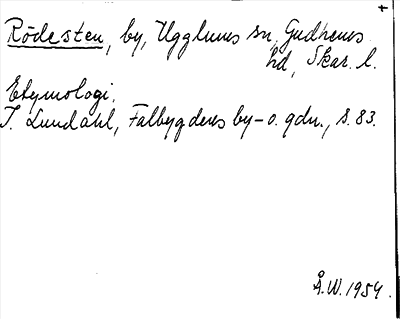 +
Rödesten, by, Ugglums sn, Gudhems
hd, Skar. l.
Etymologi.
I. Lundahl, Falbygdens by- o. gdn., s. 83.
Å.W. 1954.